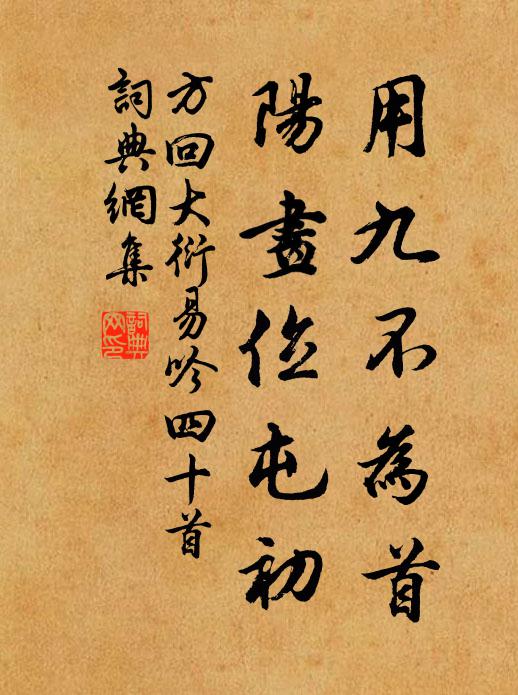 用九不為首
陽畫位屯初
方回大衍易吟四十首
詞典網集
詞典
网印